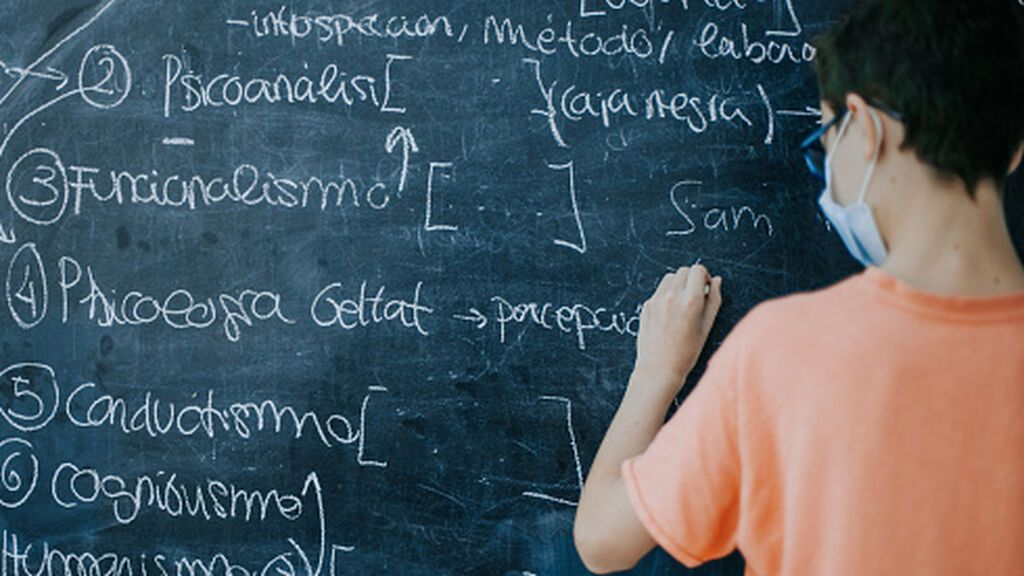 -introspeccion, método, labora
② Psicoanálisi[ ] (caja negra) →
③ Funcionalismo [ ]
Sam
④ Psicología Geltat → percepció
⑤ Conductismo [ ]
⑥ Cognitivismo
Humanismo